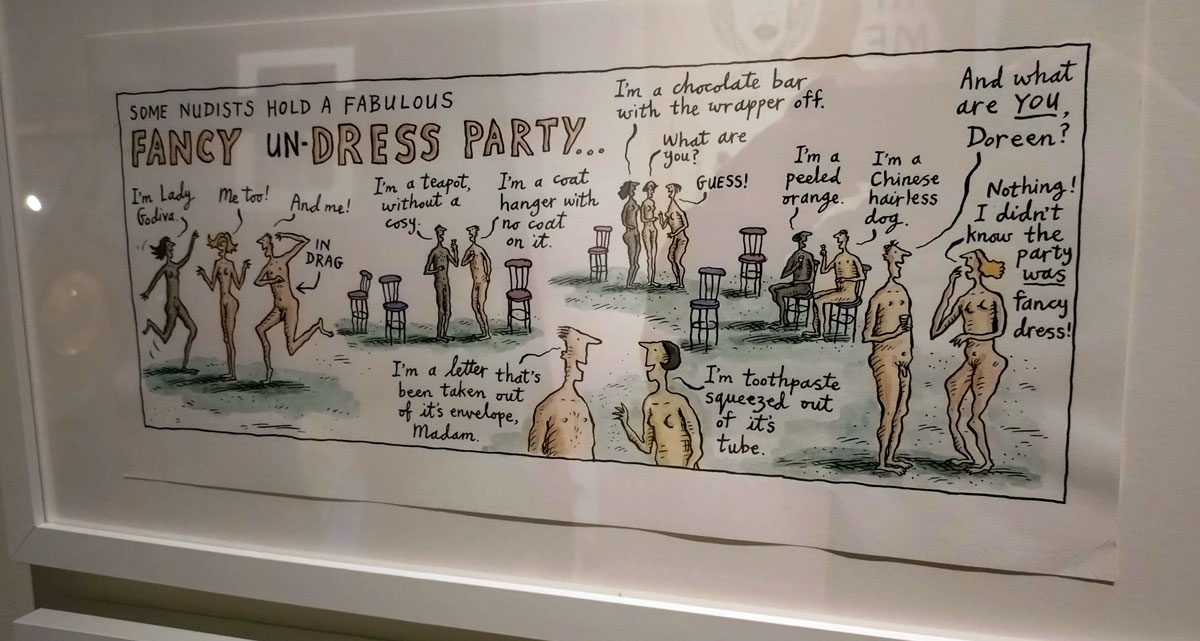 SOME NUDISTS HOLD A FABULOUS
FANCY UN-DRESS PARTY...
I'm Lady
Godiva.
Me too!
And me!
IN
DRAG
I'm a teapot,
without a
cosy.
I'm a coat
hanger with
no coat
on it.
I'm a chocolate bar
with the wrapper off.
What are
you?
GUESS!
I'm a
peeled
orange.
I'm a
Chinese
hairless
dog.
And what
are YOU,
Doreen?
Nothing!
I didn't
know the
party
was
fancy
dress!
I'm a letter that's
been taken out
of it's envelope,
Madam.
I'm toothpaste
squeezed out
of it's
tube.